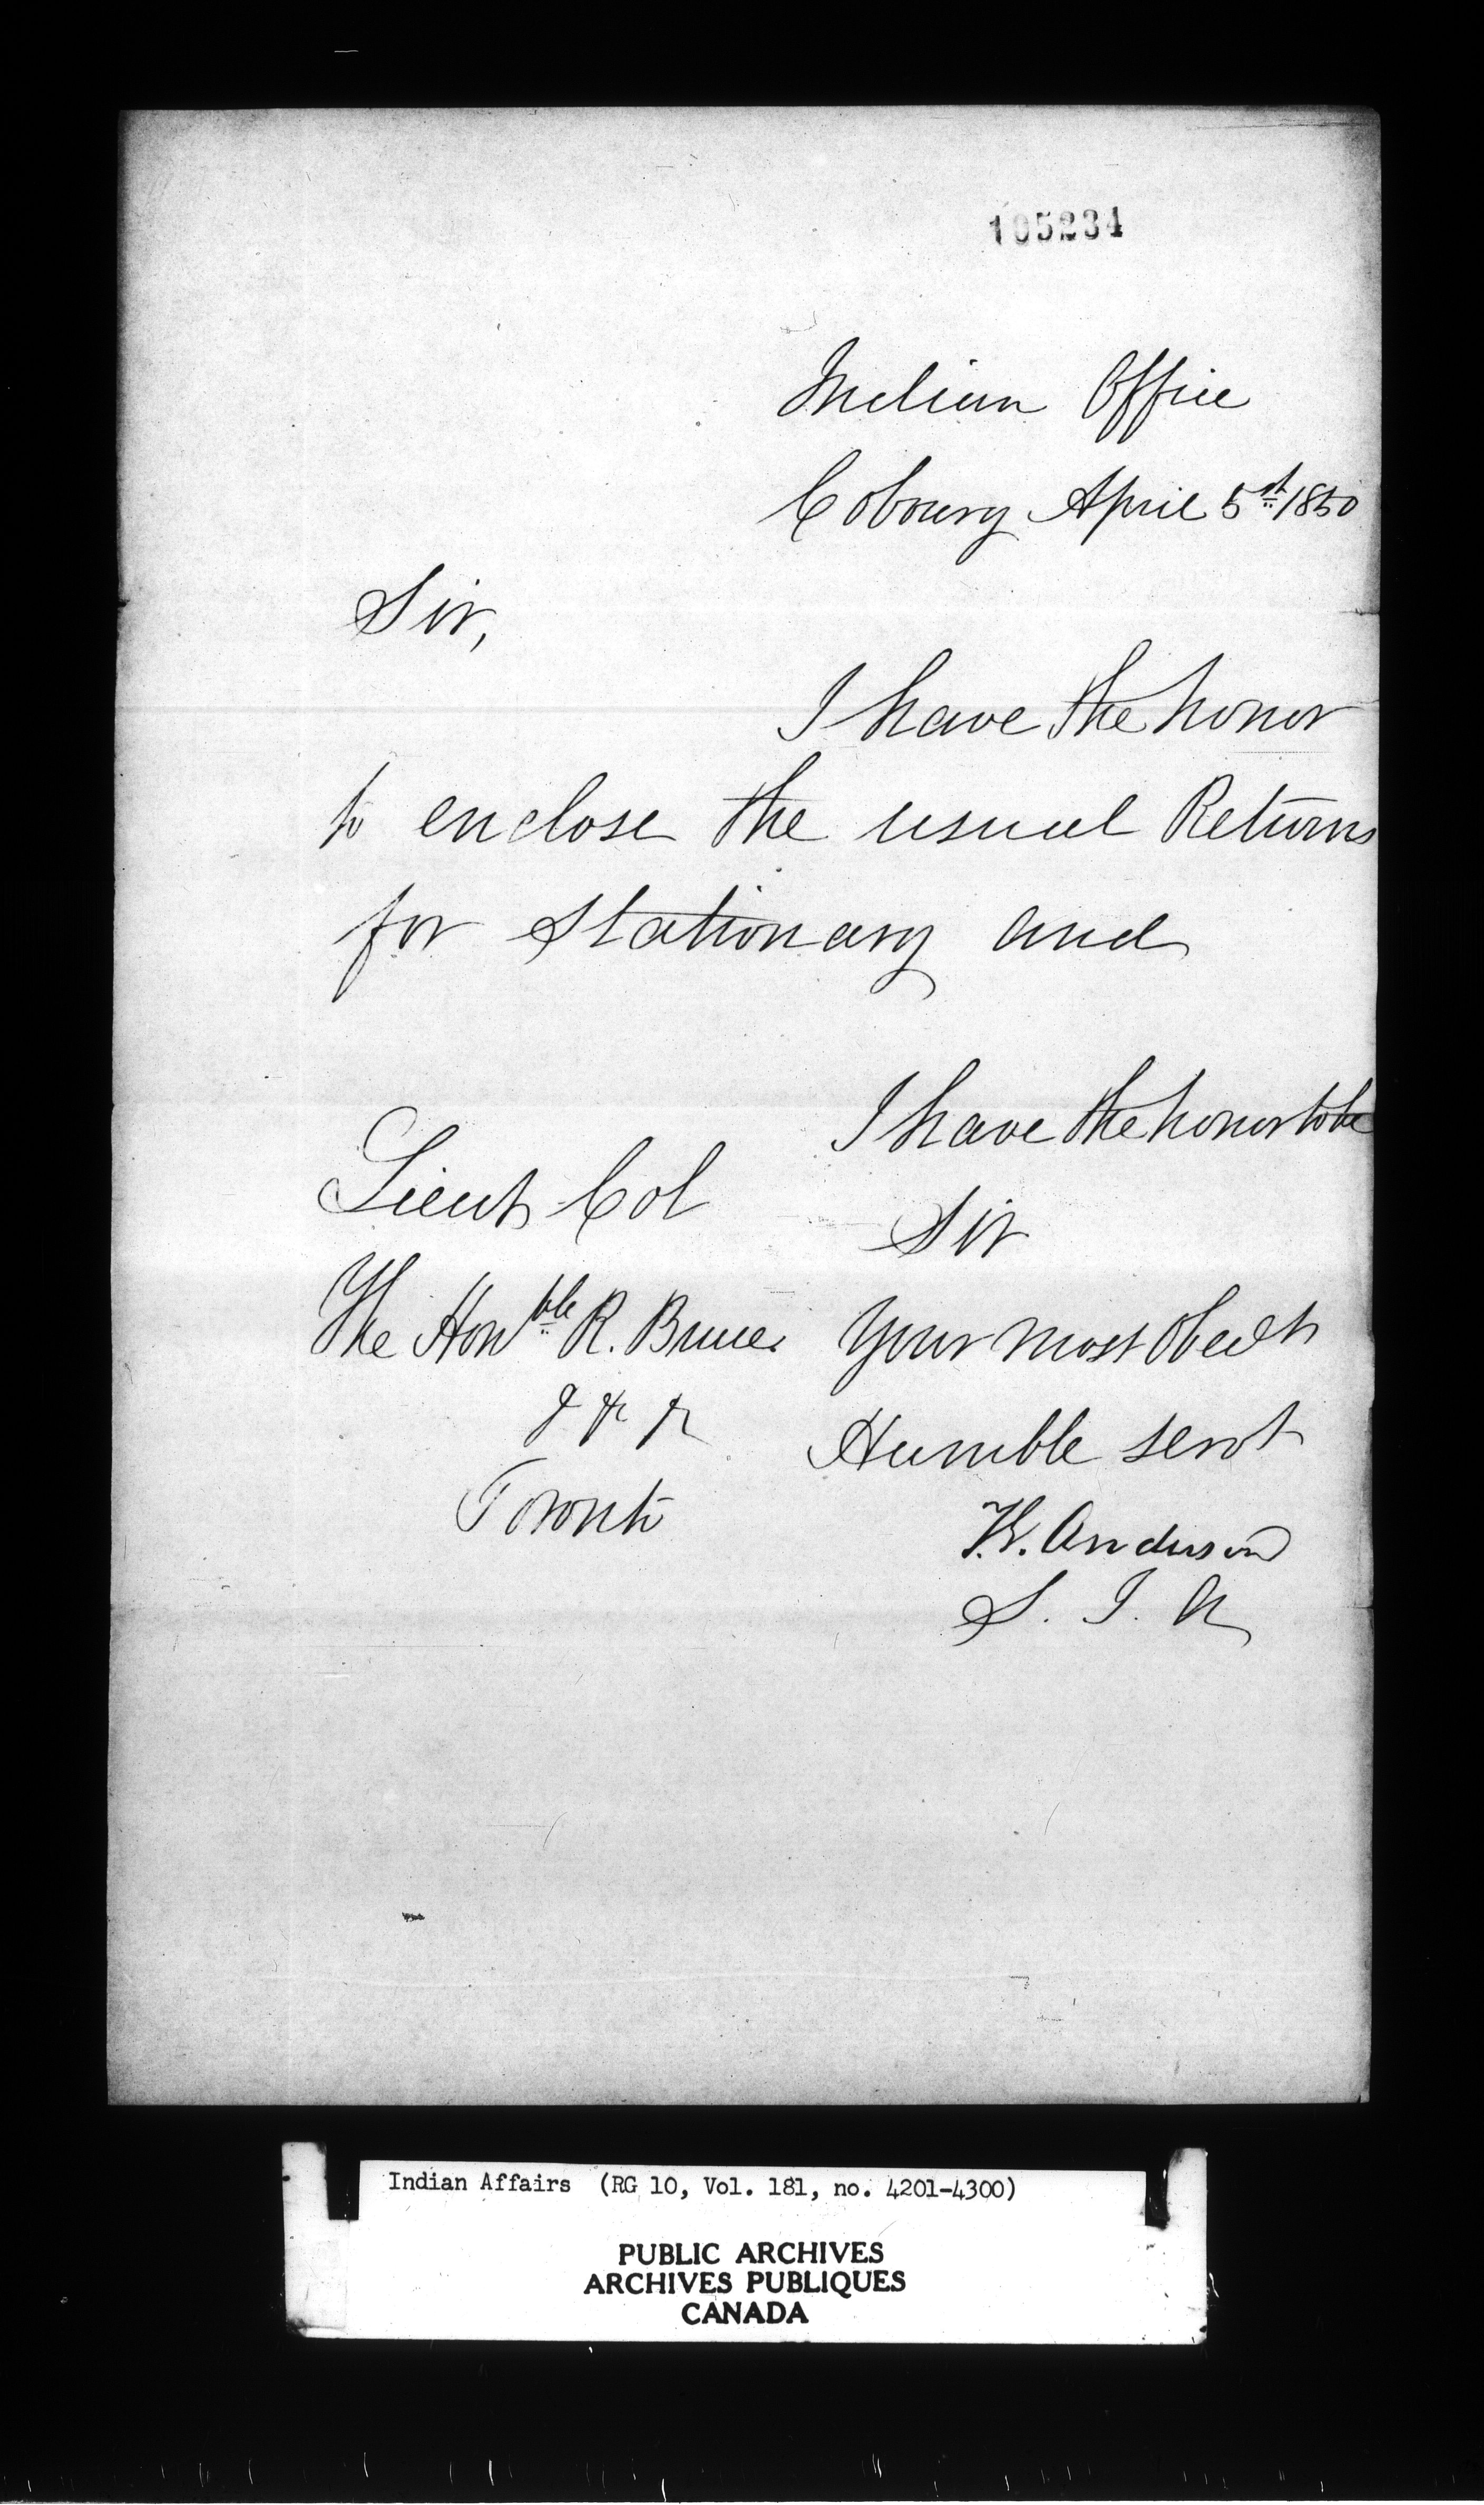 105234
Indian Office
Cobourg April 5st 1850
Sir,
I have the honor
to enclose the usual Returns
for Stationary and
I have the honor to be
Sir
Your most Obedt
Humble Servt
Anderson
S. I. A
Lieut Col
The Honble R. Bruce
&c &c &c
Toronto
Indian Affairs (RG 10, Vol. 181, no. 4201-4300)
PUBLIC ARCHIVES
ARCHIVES PUBLIQUES
CANADA